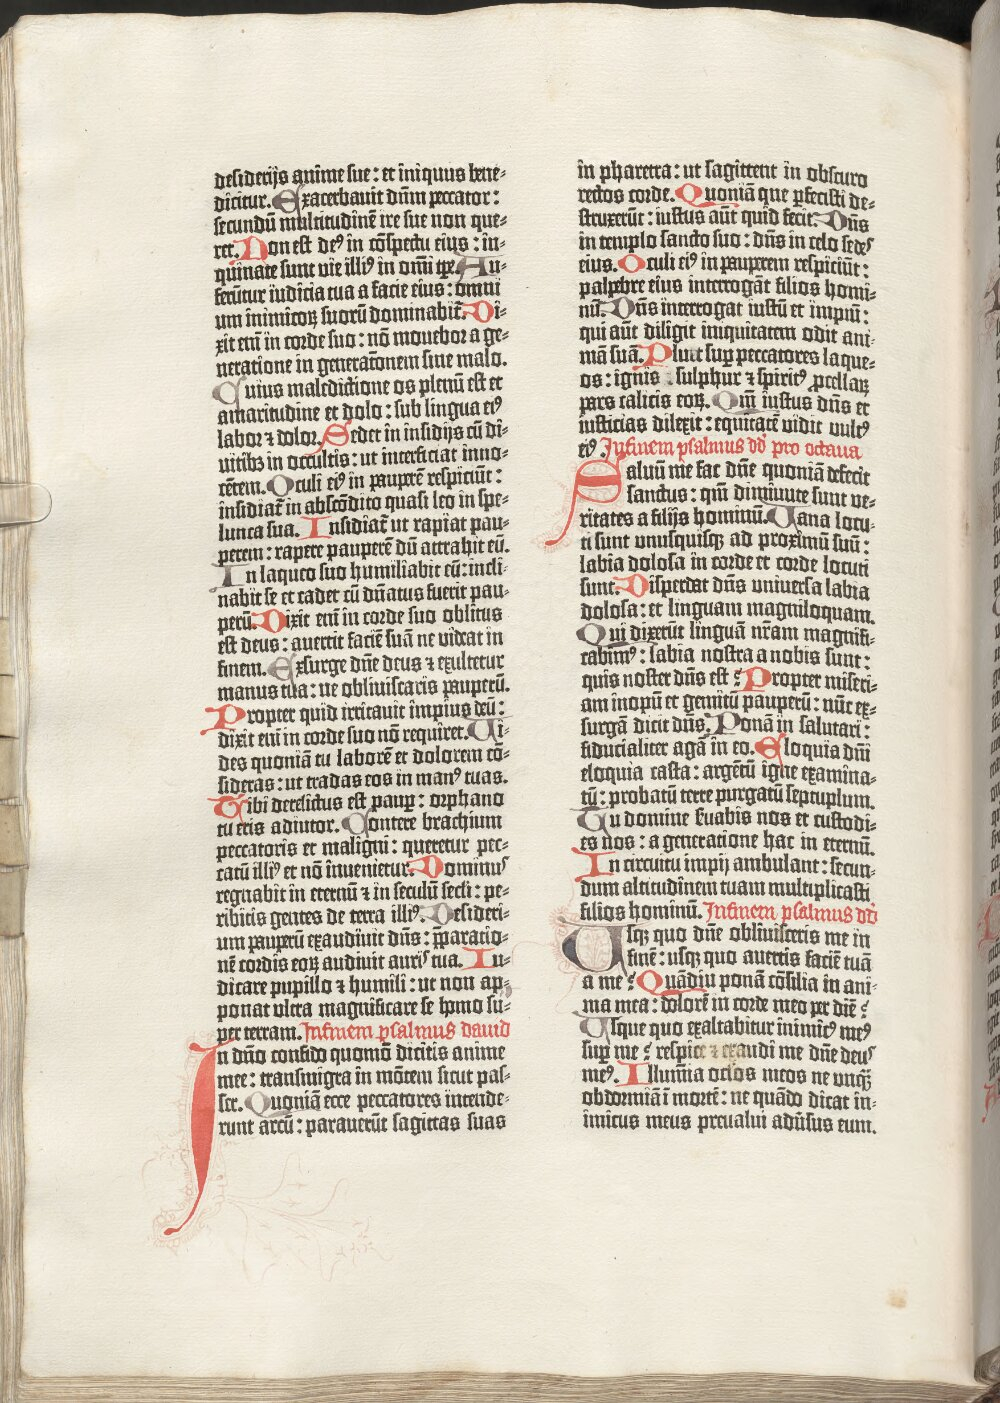 desiderijs anime sue: et iniquus bene-
dicitur. Exacerbauit dñm peccator:
secundũ multitudinẽ ire sue non que-
ret. Non est deꝰ in cõspectu eius: in-
quinate sunt vie illiꝰ in omĩ tꝑe. Au-
ferũtur iudicia tua a facie eius: omni
um inimicoꝝ suorũ dominabit̃. Di-
xit em̃ in corde suo: nõ mouebor a ge-
neratione in generatõnem sine malo.
Cuius maledictione os plenũ est et
amaritudine et dolo: sub lingua eiꝰ
labor ⁊ dolor. Sedet in insidijs cũ di-
uitibꝫ in occultis: ut interficiat inno-
cẽtem. Oculi eiꝰ in pauprẽ respiciũt:
insidiat̃ in abscõdito quasi leo in spe-
lunca sua. Insidiat̃ ut rapiat pau-
perem: rapere pauperẽ dũ attrahit eũ.
In laqueo suo humiliabit eũ: incli-
nabit se et cadet cũ dñatus fuerit pau-
perũ. Dixit em̃ in corde suo oblitus
est deus: auertit faciẽ suã ne videat in
finem. Exsurge dñe deus ⁊ exultetur
manus tua: ne obliuiscaris pauperũ.
Propter quid irritauit impius deũ:
dixit em̃ in corde suo nõ requiret. Vi-
des quoniã tu laborẽ et dolorem cõ-
sideras: ut tradas eos in manꝰ tuas.
Tibi derelictus est paup: orphano
tu eris adiutor. Contere brachium
peccatoris et maligni: queretur pec-
catũ illiꝰ et nõ inuenietur. Dominus
regnabit in eternũ ⁊ in seculũ secli: pe-
ribitis gentes de terra illiꝰ. Desideri-
um pauperũ exaudiuit dñs: p̃paratio-
nẽ cordis eoꝝ audiuit auris tua. Iu-
dicare pupillo ⁊ humili: ut non ap-
ponat vltra magnificare se homo su-
per terram. In finem psalmus dauid
In dño confido quomõ dicitis anime
mee: transmigra in mõtem sicut pas-
ser. Quoniã ecce peccatores intende-
runt arcũ: parauerũt sagittas suas
in pharetra: ut sagittent in obscuro
rectos corde. Quoniã que pfecisti de-
struxerũt: iustus aũt quid fecit. Dñs
in templo sancto suo: dñs in celo sedes
eius. Oculi eiꝰ in pauperem respiciũt:
palpebre eius interrogãt filios homi-
nũ. Dñs interrogat iustũ et impiũ:
qui aũt diligit iniquitatem odit ani-
mã suã. Pluet sup peccatores laque-
os: ignis sulphur ⁊ spiritꝰ ꝓcellaꝝ
pars calicis eoꝝ. Qm̃ iustus dñs et
iusticias dilexit: equitatẽ vidit vultꝰ
eiꝰ. In finem psalmus dd̃ pro octaua
Saluũ me fac dñe quoniã defecit
sanctus: qm̃ diminute sunt ve-
ritates a filijs hominũ. Vana locu-
ti sunt unusquisqꝫ ad proximũ suũ:
labia dolosa in corde et corde locuti
sunt. Disperdat dñs vniuersa labia
dolosa: et linguam magniloquam.
Qui dixerũt linguã nr̃am magnifi-
cabimꝰ: labia nostra a nobis sunt:
quis noster dñs est? Propter miseri-
am inopũ et gemitũ pauperũ: nũc ex-
surgã dicit dñs. Ponã in salutari:
fiducialiter agã in eo. Eloquia dñi
eloquia casta: argẽtũ igne examina-
tũ: probatũ terre purgatũ septuplum.
Tu domine seruabis nos et custodi-
es nos: a generatione hac in eternũ.
In circuitu impij ambulant: secun-
dum altitudinem tuam multiplicasti
filios hominũ. In finem psalmus dd̃
Vsqꝫ quo dñe obliuisceris me in
finẽ: usqꝫ quo auertis faciẽ tuã
a me? Quãdiu ponã cõsilia in ani-
ma mea: dolorẽ in corde meo per diẽ?
Vsque quo exaltabitur inimicꝰ meꝰ
sup me? respice ⁊ exaudi me dñe deus
meꝰ. Illumĩa oclos meos ne vnqꝫ̃
obdormiã ĩ mortẽ: ne quãdo dicat in-
imicus meus preualui aduˀsus eum.